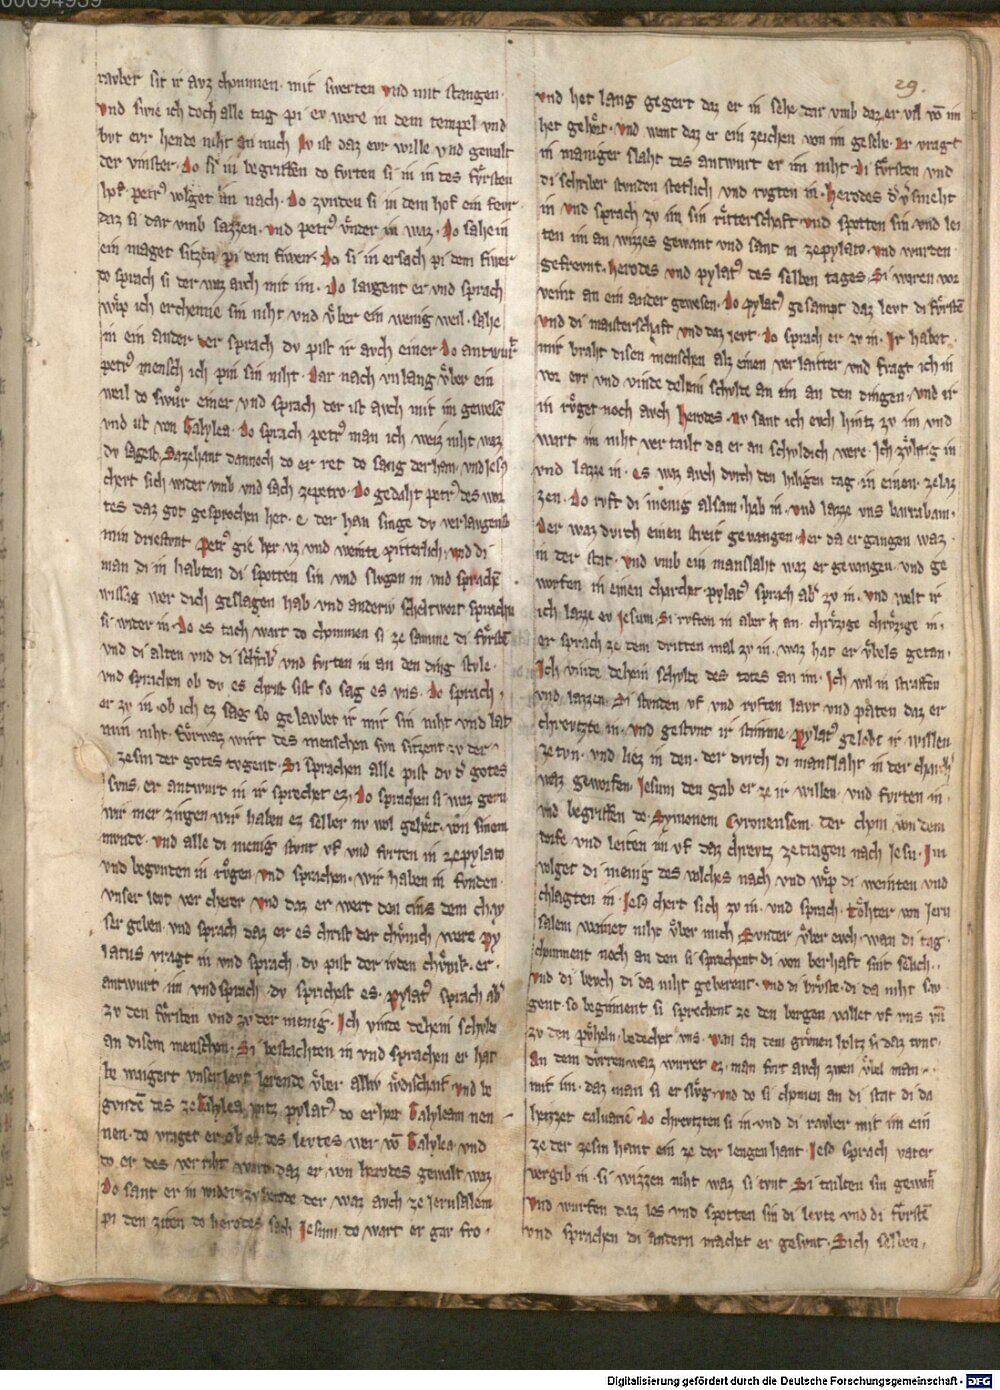 00094939
29.
ravber sit ir avz chommen. mit swerten vnd mit stangen.
vnd swie ich doch alle tag pi ev were in dem tempel vnd
bvt evr hende niht an mich Nv ist daz evr wille vnd gewalt
der vinster. Do si in begriffen do fvrten si in in des fv́rsten
hof. petrꝰ volget im nach. Do zvnden si in dem hof ein fevr
daz si dar vmb sazzen. vnd petrꝰ vnder in waz. Do sahe in
ein maget sitzen pi dem fiwer. Do si in ersach pi dem fiwer
do sprach si der waz avch mit im. Do laugent er vnd sprach
wip ich erchenne sin niht vnd v́ber ein wenig weil. sahe
in ein ander der sprach dv pist ir avch einer Do antwurt
petrꝰ mensch ich pin sin niht. Dar nach vnlang v́ber ein
weil do swur einer vnd sprach der ist avch mit im gewesē
vnd ist von Galylea. do sprach petrꝰ man ich weiz niht waz
dv sagest. Dazehant dannoch do er ret do sang der han. vnd iesꝰ
chert sich wider vmb vnd sach ze petro. Do gedaht petrꝰ des wor
tes daz got gesprochen het. e der han singe dv verlaugenst
min driestvnt petrꝰ gie her vz vnd weinte pitterlich. vnd di
man di in habten di spotten sin vnd slvgen in vnd sprachē
wissag wer dich geslagen hab vnd anderiv scheltwort sprachen
si wider in. Do es tach wart do chommen si ze samme di fv́rstē
vnd di alten vnd di schriber vnd fvrten in an den ding stvle.
vnd sprachen ob dv es christ sist so sag es vns. do sprach.
er zv in. ob ich ez sag so gelavbet ir mir sin niht vnd lat
min niht. fv́rwaz wirt des menschen svn sitzent zv der
zesin der gotes tvgent. Si sprachen alle pist dv d̕ gotes
svns. er antwurt in ir sprechet ez. Do sprachen si waz gern
wir mer zivgen wir haben ez selber nv wol gehort. von sinem
mvnde. vnd alle di menig stvnt vf vnd fvrten in ze pylato
vnd begvnden in rv́gen vnd sprachen. wir haben in fvnden.
vnser levt ver cherer vnd daz er wert den cins dem chay
ser geben. vnd sprach daz er es christ der chv́nich were py
latus vragt in vnd sprach. dv pist der ivden chv́nik. er.
antwurt im vnd sprach dv sprichest es. pylatꝰ sprach ab̕
zv den fv́rsten vnd zv der menig. Ich vinde deheni schvlde
an disem menschen. Si bestachten in vnd sprachen er hat
be waigert vnser levt lerende v́ber alliv iv́dischait vnd be
gvnde des ze Galylea vntz pylatꝰ do er hort Galyleam nen
nen. do vraget er ob er des levtes wer vō Galylea vnd
do er des ver riht wart. daz er von herodes gewalt waz
Do sant er in wider zv herode der waz avch ze ierusalem
pi den ziten do herodes sach Jesum do wart er gar fro.
vnd het lang gegert daz er in sehe. dar vmb daz er vil vō im
het gehort. vnd want daz er ein zeichen von im gesehe. Er vragt
in maniger slaht des antwurt er im niht. di fv́rsten vnd
di schriber stvnden stetlich vnd rvgten in. herodes d̕ v̕smeht
in vnd sprach zv im sin ritterschaft vnd spotten sin vnd lei
ten im an wizzes gewant vnd sant in ze pylato. vnd wurden
gefrevnt. herodes vnd pylatꝰ des selben tages. Si waren vor
veint an ein ander gewesen. Do pylatꝰ gesampt daz levt di fv́rstē
vnd di maisterschaft vnd daz levt. do sprach er zv in. Ir habet
mir braht disen menschen alz einen ver laitter vnd fragt ich in
vor evr vnd vinde deheni schvlde an im an den dingen. vnd ir
in rv́get noch avch herodes. Nv sant ich evch hintz zv im vnd
wart im niht vertailt da er an schvldich were. Ich zv́htig in
vnd lazze in. es waz avch dvrch den hiligen tag. in einen. ze laz
zen. do rvft di menig alsam. hab in. vnd lazze vns barrabam.
Der waz dvrch einen streit gevangen. der da ergangen waz.
in der stat. vnd vmb ein manslaht waz er gevangen. vnd ge
worfen in einen charcher pylatꝰ sprach ab̕ zv in. vnd welt ir
ich lazze ev Jesum. Si rvften in aber h̕ an. chrv́zige chrv́zige in.
er sprach ze dem dritten mal zv in. waz hat er v́bels getan.
Ich vinde dehein schvlde des todes an im. Ich wil in straffen
vnd lazzen. Si stvnden vf vnd rvften lavt vnd paten daz er
chrevtzte in. vnd gestvnt ir stimme. pylatꝰ gelobt ir willen
ze tvn. vnd liez in den. der dvrch di manslaht in der charch̕
waz geworfen. Jesum den gab er ze ir willen. vnd fvrten in.
vnd begriffen do Symonem Cyronensem. der chom von dem
dorfe vnd leiten im vf daz chrevtz ze tragen nach Jesu. Im
volget di menig des volches nach vnd wip di weinten vnd
chlagten in. Jesꝰ chert sich zv in. vnd sprach. tohter von Jeru
salem weinet niht v́ber mich Svnder v́ber evch. wan di tag.
choment noch an den si sprechent di von berhaft sint selich.
vnd di bevch di da niht geberent. vnd di brv́ste. di da niht sev
gent. so beginnent si sprechent ze den bergen vallet vf vns vn̄
zv den pv́heln. bedechet vns. wan an dem grv́nen holtz si daz tvnt.
an dem dv́rren waz wirret ez. man fvrt avch zwen v́bel man
mit im. daz man si erslv́g. vnd do si chomen an di stat di da
heizzet caluarie. do chrevtzten si in. vnd di ravber mit im ein
ze der zesin hant ein ze der lengen hant. Jesꝰ sprach vater
vergib in. si wizzen niht waz si tvnt Si tailten sin gewan̄t
vnd wurfen daz los vnd spotten sin di levte vnd di fv́rstē
vnd sprachen di andern machet er gesvnt. Sich selben.
Digitalisierung gefördert durch die Deutsche Forschungsgemeinschaft - DFG